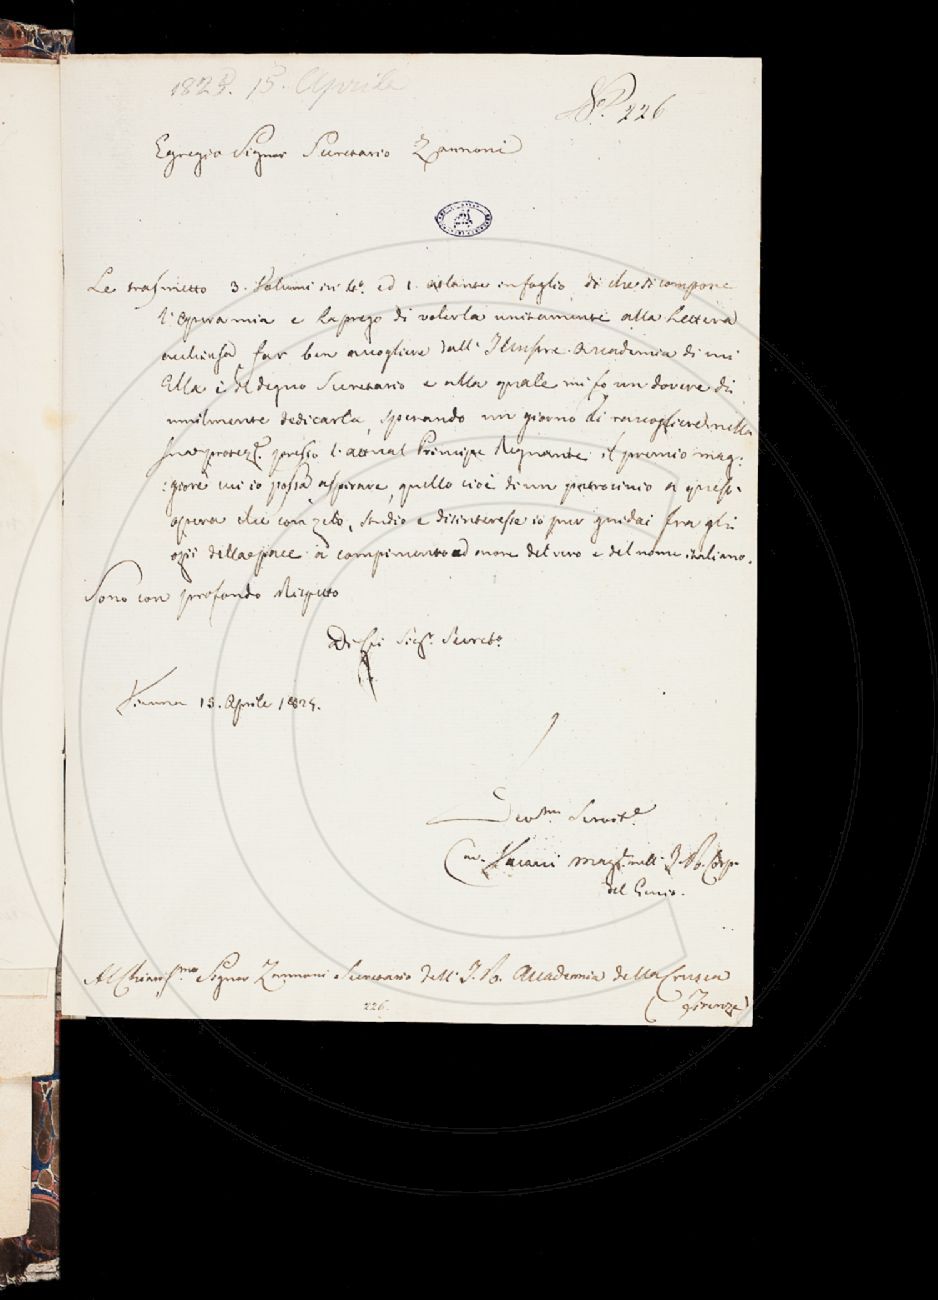 1825. 15. Aprile
N.° 226
Egregio Signor Secretario Zannoni
Le trasmetto 3. Volumi in 4.° ed 1. atlante in foglio, di che si compone
l'opera mia e La prego di volerla unitamente alla Lettera
acchiusa far ben accogliere dall' Illustre Accademia di cui
Ella è il degno Secretario e alla quale mi fo un dovere di
umilmente dedicarla, sperando un giorno di raccogliere nella
sua protez.e presso l'attual Principe Regnante il premio mag:
:giore cui io possa aspirare, quello cioè di un patrocinio a quest'
opera che con zelo, studio e disinteresse io pur guidai fra gli
ozii della pace a compimento ad onore del vero e del nome italiano.
Sono con profondo Rispetto
Di Lei Sig.r Secret.o
Vienna 15. Aprile 1825.
Dev.mo Servit.e
Cav. Vacani Magg.e nell' I. R. Corpo
del Genio.
Al Chiariss.mo Signor Zannoni Secretario dell' I. R. Accademia della Crusca
(Firenze)
226.